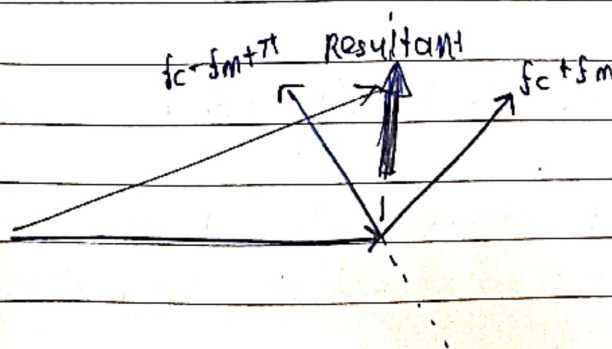 fc-fm+π
Resultant
fc+fm